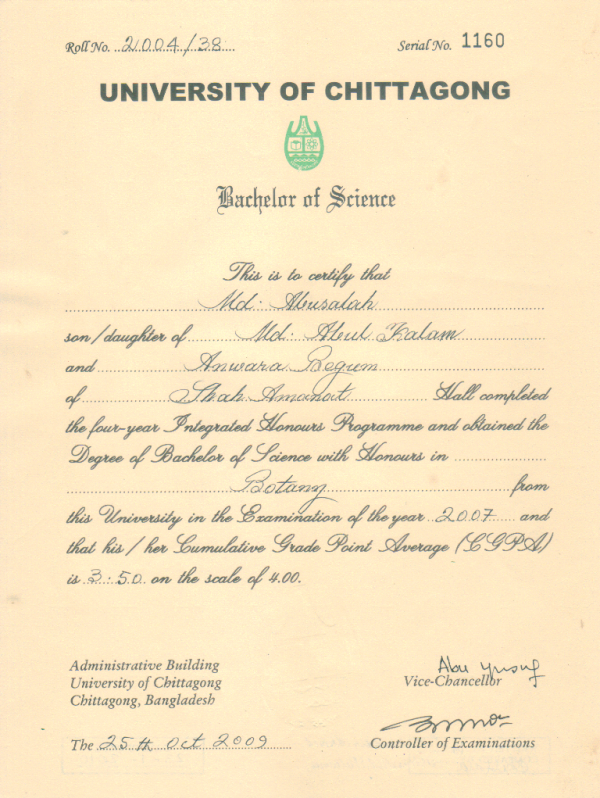 Roll No. 2004/38 Serial No. 1160
UNIVERSITY OF CHITTAGONG
Bachelor of Science
This is to certify that
Md. Abusalah
son/daughter of Md. Abul Kalam
and Anwara Begum
of Shah Amanat Hall completed
the four-year Integrated Honours Programme and obtained the
Degree of Bachelor of Science with Honours in
Botany from
this University in the Examination of the year 2007 and
that his / her Cumulative Grade Point Average (CGPA)
is 3.50 on the scale of 4.00.
Administrative Building
University of Chittagong
Chittagong, Bangladesh
Abu Yusuf
Vice-Chancellor
The 25th Oct 2009
Controller of Examinations